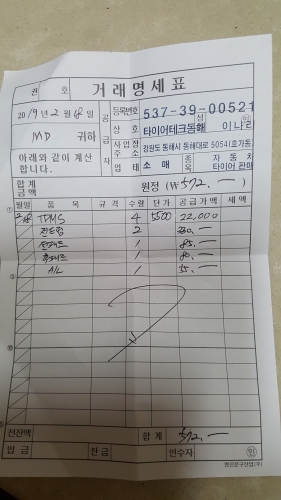 권 호 거래명세표
2019년 2월 28일
MD 귀하
아래와 같이 계산합니다.
공급자
등록번호 537-39-00521
상호 타이어테크동해 성명 이나리
사업장주소 강원도 동해시 동해대로 5054(효가동)
업태 소매 종목 자동차 타이어 판매
합계금액 원정 (₩572.—)
월일 품목 규격 수량 단가 공급가액 세액
2/28 TPMS 4 5500 22,000
2
1 85.—
1 80.—
A/L 1 35.—
전잔액 합계 572.—
입금 잔금 인수자 인